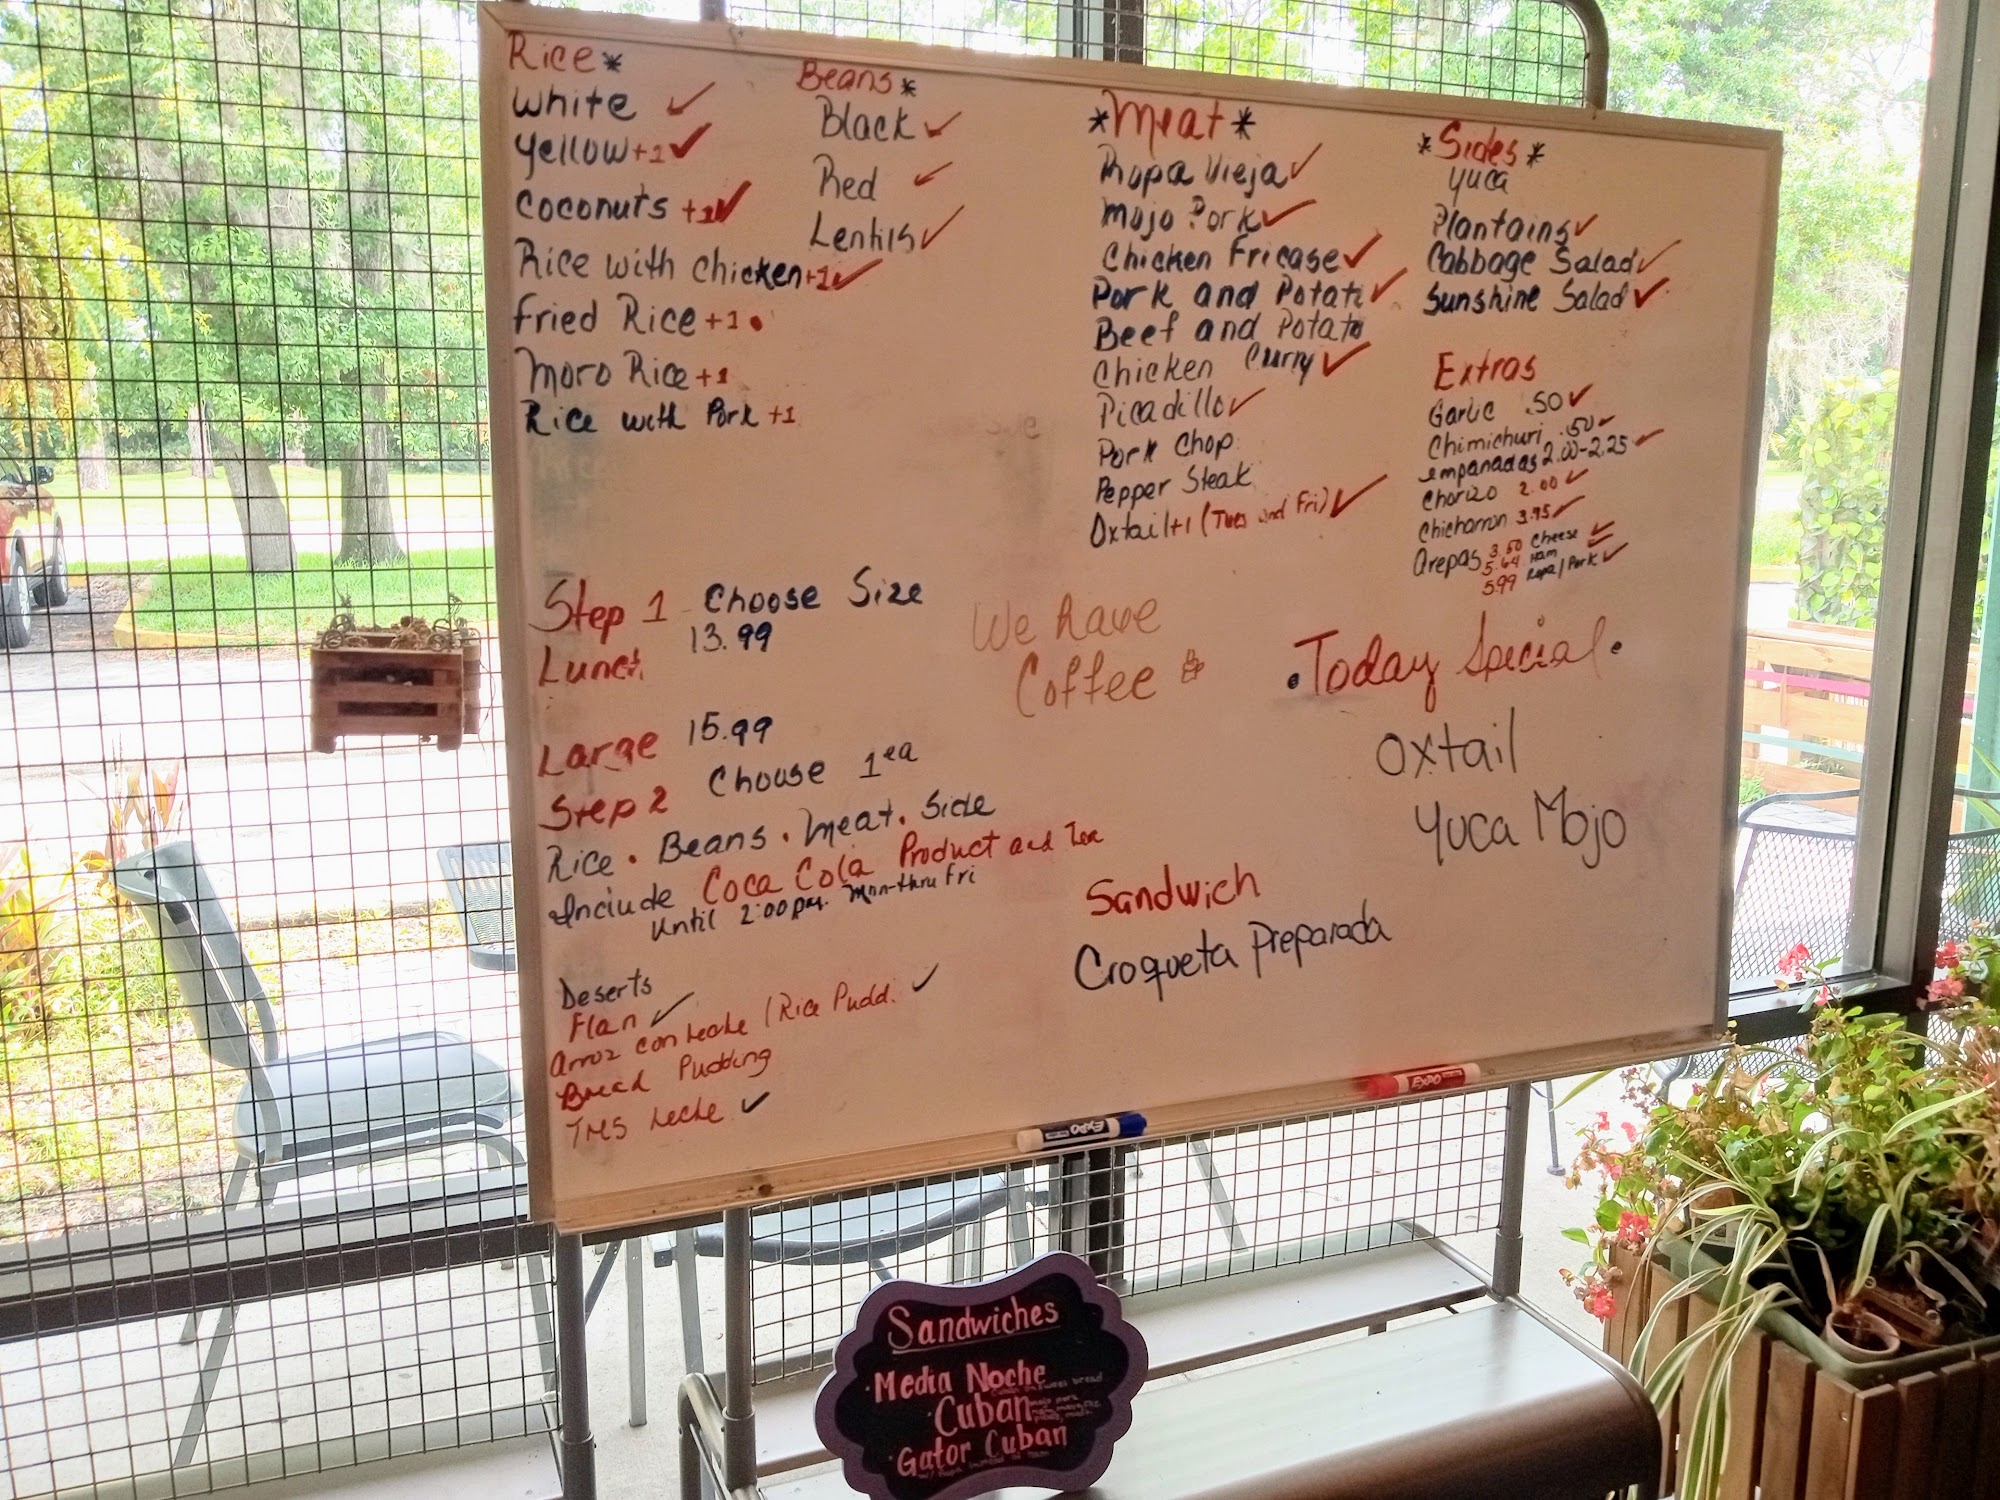 Rice *
White ✓
Yellow +1 ✓
Coconuts +1 ✓
Rice with chicken +1 ✓
Fried Rice +1 •
Moro Rice +1
Rice with Pork +1
Beans *
Black ✓
Red ✓
Lentils ✓
* Meat *
Ropa Vieja ✓
Mojo Pork ✓
Chicken Fricase ✓
Pork and Potato ✓
Beef and Potato
Chicken Curry ✓
Picadillo ✓
Pork Chop
Pepper Steak
Oxtail +1 (Tues and Fri) ✓
* Sides *
Yuca
Plantains ✓
Cabbage Salad ✓
Sunshine Salad ✓
Extras
Garlic .50 ✓
Chimichuri .50 ✓
empanadas 2.00-2.25 ✓
Chorizo 2.00 ✓
Chicharron 3.95 ✓
Arepas 3.50 Cheese ✓
5.64 Ham ✓
5.99 Ropa/Pork ✓
Step 1 Choose Size
Lunch 13.99
Large 15.99
Step 2 Choose 1 ea
Rice • Beans • Meat • Side
Include Coca Cola Product and Tea
Until 2:00 pm. Mon-thru Fri
We have
Coffee
• Today Special •
Oxtail
Yuca Mojo
Sandwich
Croqueta Preparada
Deserts
Flan ✓
Arroz con Leche / Rice Pudd. ✓
Bread Pudding
TRES Leche ✓
EXPO
EXPO
Sandwiches
Media Noche
Cuban
Gator Cuban